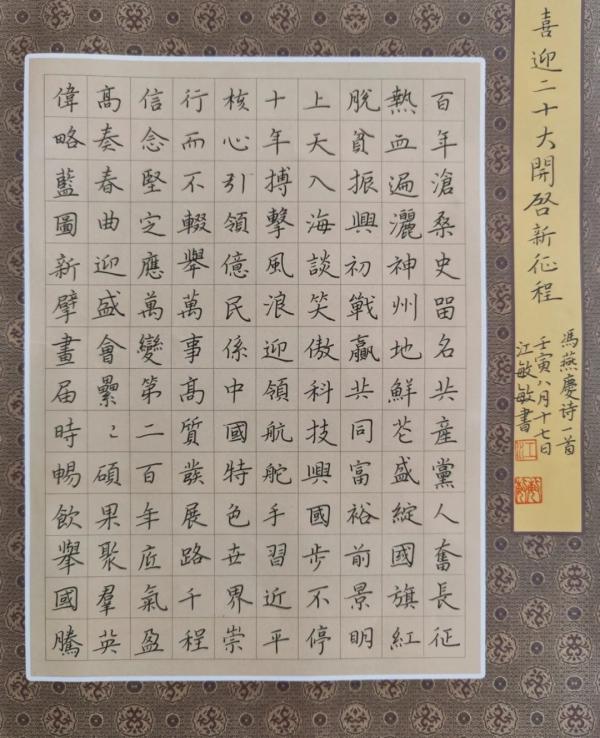 喜迎二十大開啓新征程
馮燕慶诗一首
壬寅八月十七日
江敏敏書
百年滄桑史留名共產黨人奮長征
熱血遍灑神州地鮮花盛綻國旗紅
脫貧振興初戰贏共同富裕前景明
上天入海談笑傲科技興國步不停
十年搏擊風浪迎領航舵手習近平
核心引領億民係中國特色世界崇
行而不輟舉萬事高質發展路千程
信念堅定應萬變第二百年底氣盈
高奏春曲迎盛會纍〻碩果聚羣英
偉略藍圖新擘畫届時暢飲舉國騰